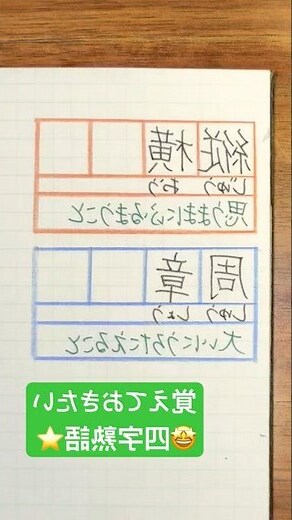 縦横
じゅう おう
思うままにふるまうこと
周章
しゅう しょう
大いにうろたえること
覚えておきたい
🤩四字熟語⭐